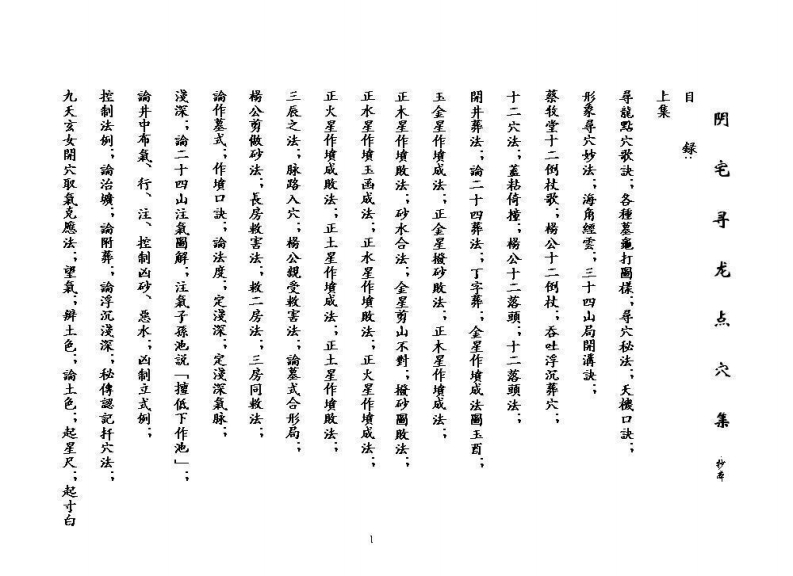 阴宅寻龙点穴集 抄本
目録:
上集
尋龍點穴歌訣;各種墓龜打圖樣;尋穴秘法;天機口訣;
形象尋穴妙法;海角經雲;三十四山局開溝訣;
蔡牧堂十二倒杖歌;楊公十二倒杖;吞吐浮沉葬穴;
十二穴法;蓋粘倚撞;楊公十二落頭;十二落頭法;
開井葬法;論二十四葬法;丁字葬;金星作墳成法圖玉酉;
玉金星作墳成法;正金星撥砂敗法;正木星作墳成法;
正木星作墳敗法;砂水合法;金星剪山不對;撥砂圖敗法;
正水星作墳玉函成法;正水星作墳敗法;正火星作墳成法;
正火星作墳成敗法;正土星作墳成法;正土星作墳敗法;
三辰之法;脉路入穴;楊公親受救害法;論墓式合形局;
楊公剪做砂法;長房救害法;救二房法;三房同救法;
論作墓式;作墳口訣;論法度;定淺深;定淺深氣脉;
淺深;論二十四山注氣圖解;注氣子孫池説「擅低下作池」;
論井中布氣、行、注、控制凶砂、惡水;凶制立式例;
控制法例;論治壙;論附葬;論浮沉淺深;秘傳認記扦穴法;
九天玄女開穴取氣克應法;望氣;辨土色;論土色;起星尺;起寸白
1